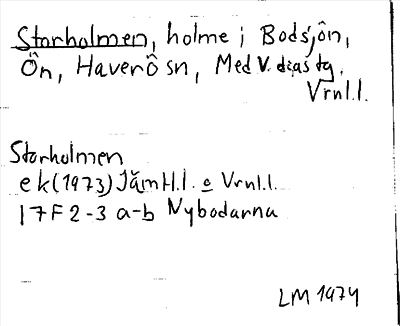 Storholmen, holme i Bodsjön,
Ön, Haverö sn, Med V. djas tg,
Vrnl.l.
Storholmen
ek (1973) Jäm H.l. o Vrnl.l.
17F 2-3 a-b Nybodarna
LM 1974